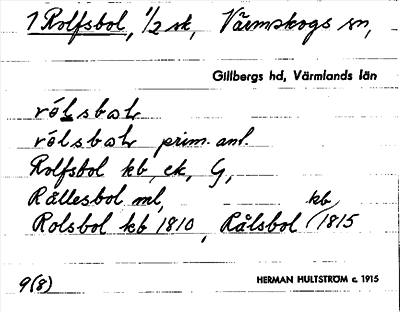 1 Rolfsbol, 1/2 sk, Värmskogs sn,
Gillbergs hd, Värmlands län
prim. anl.
Rolfsbol kb, ek, G,
Rållesbol ml,
Rolsbol kb 1810, Rålsbol kb 1815
9(8)
HERMAN HULTSTRÖM c. 1915